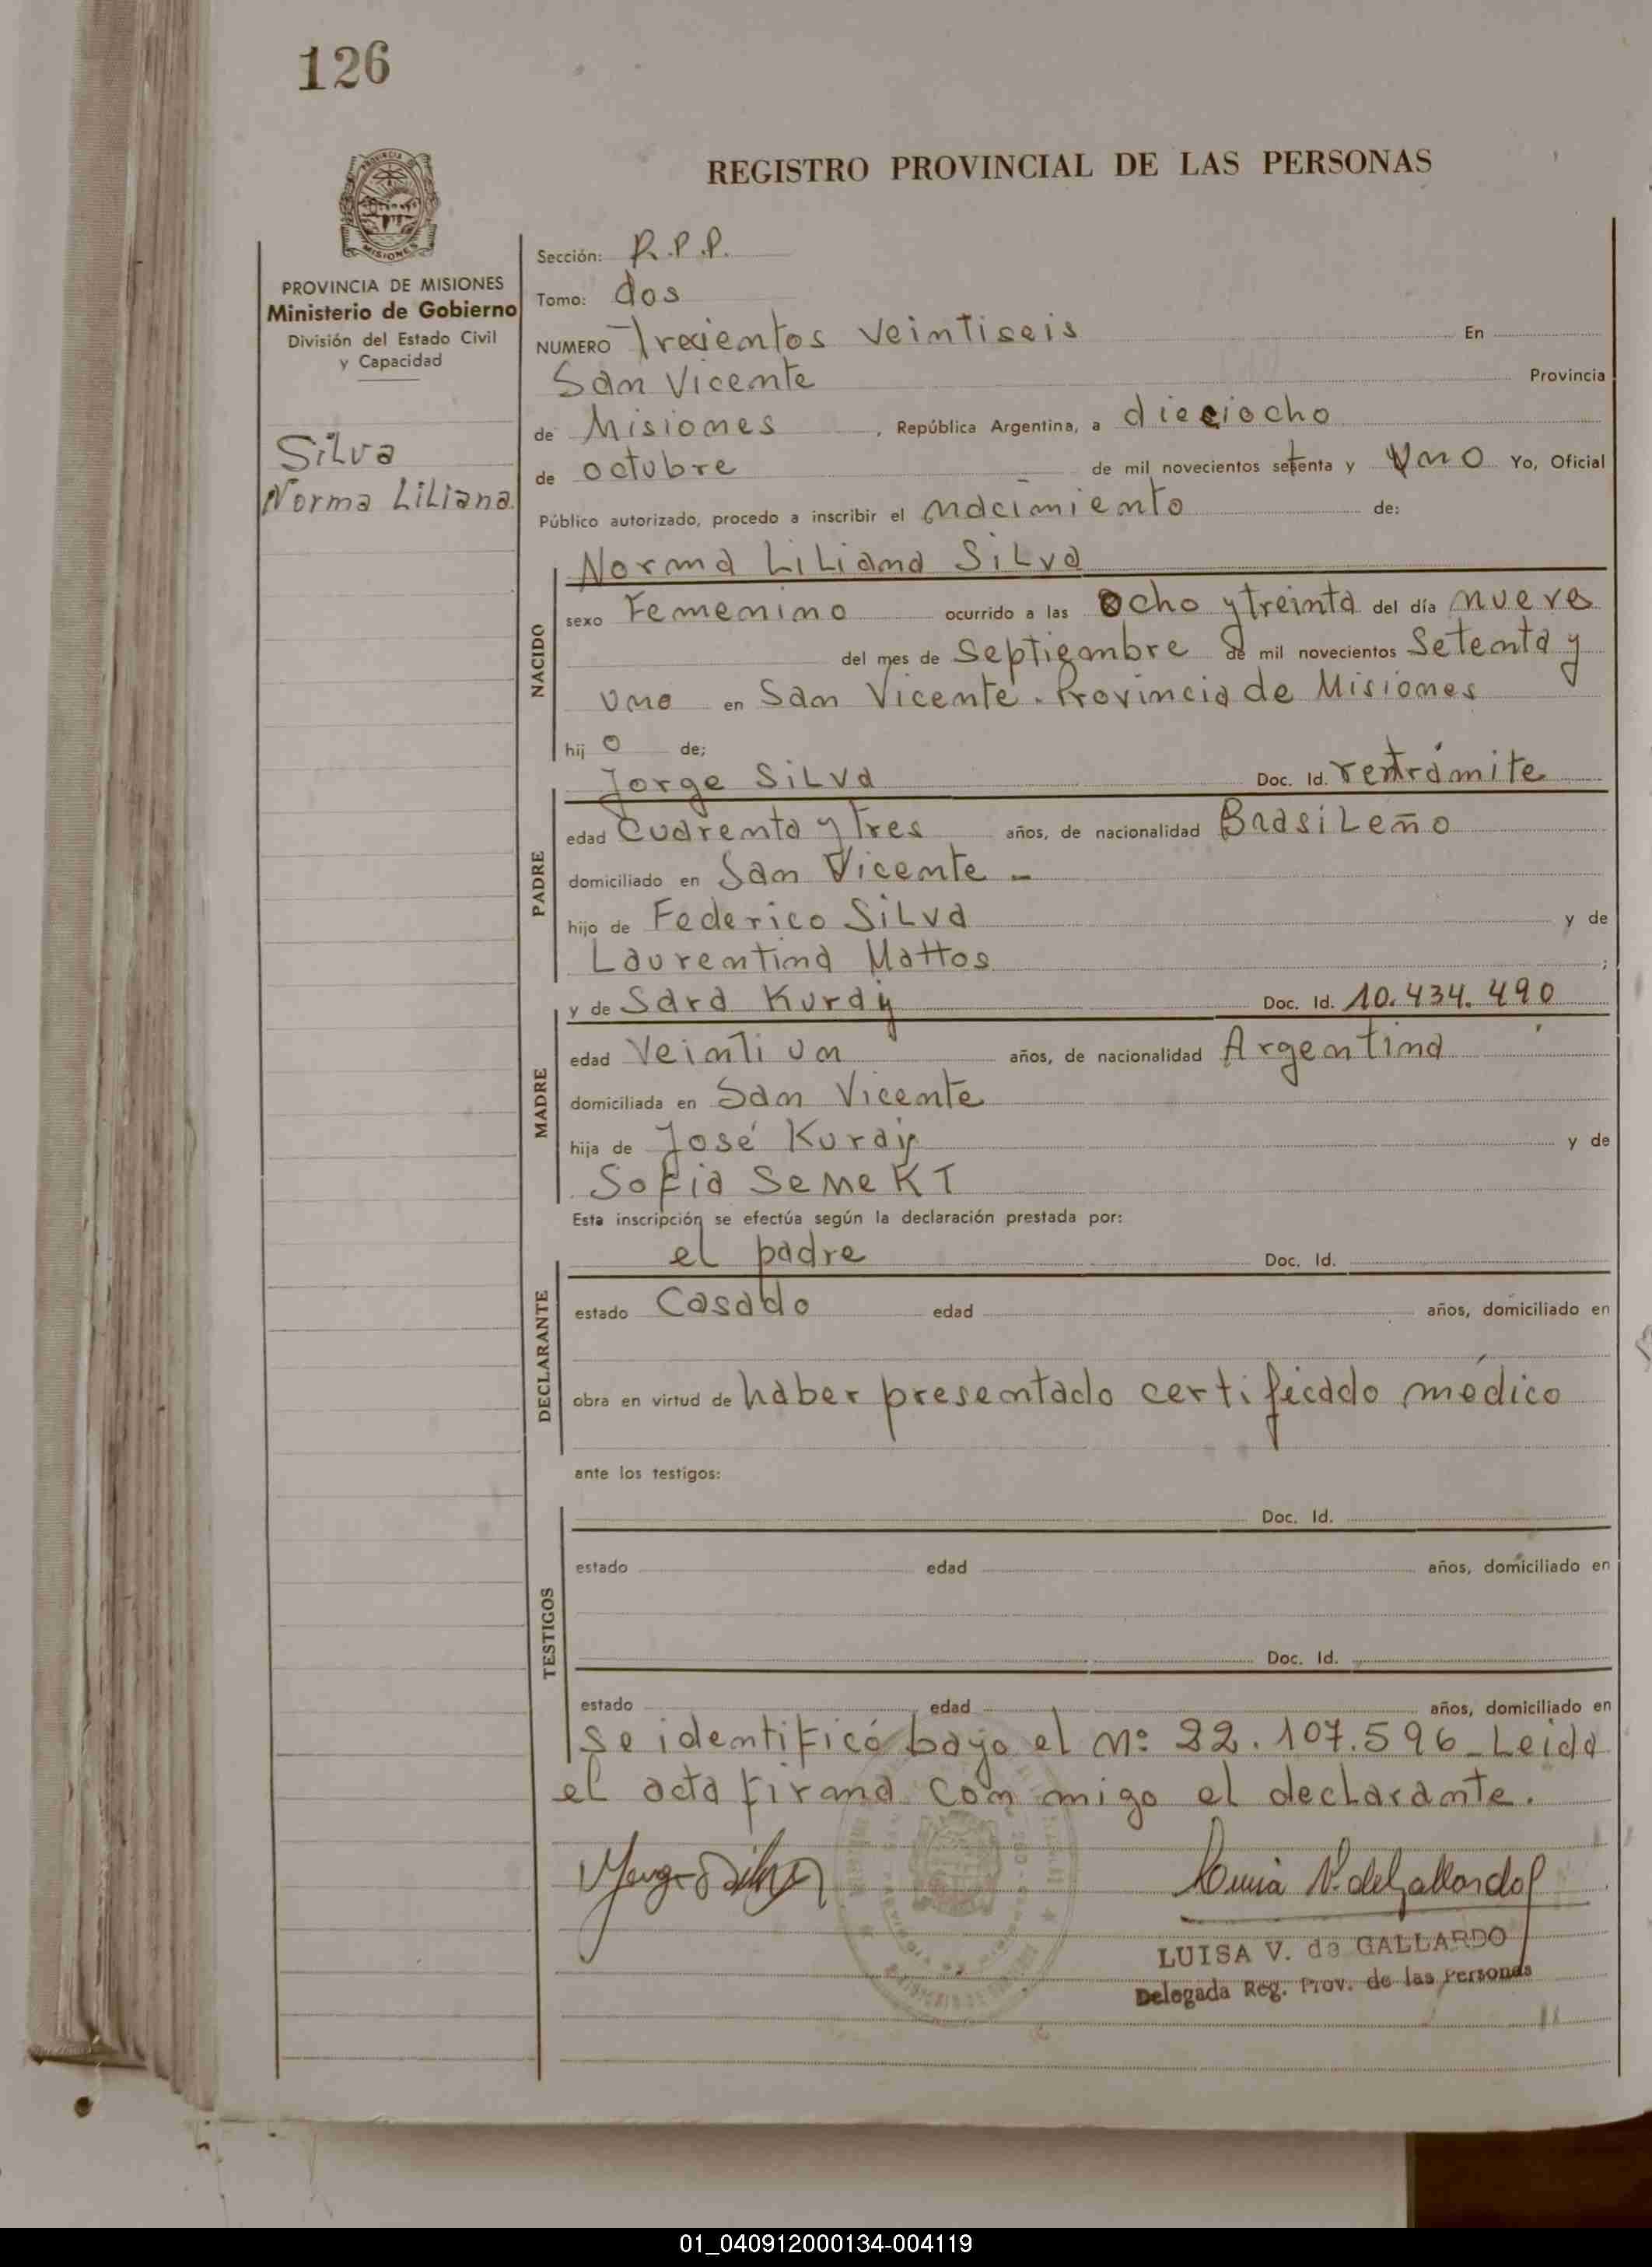 126
REGISTRO PROVINCIAL DE LAS PERSONAS
PROVINCIA DE MISIONES
Ministerio de Gobierno
División del Estado Civil
y Capacidad
Silva
Norma Liliana
Sección: R.P.P.
Tomo: dos
NUMERO Trecientos veintiseis En
San Vicente Provincia
de Misiones , República Argentina, a dieciocho
de octubre de mil novecientos setenta y Uno Yo, Oficial
Público autorizado, procedo a inscribir el nacimiento de:
NACIDO
Norma Liliana Silva
sexo Femenino ocurrido a las Ocho y treinta del día nueve
del mes de Septiembre de mil novecientos Setenta y
uno en San Vicente. Provincia de Misiones
hij o de;
PADRE
Jorge Silva Doc. Id.
edad Cuarenta y tres años, de nacionalidad Brasileño
domiciliado en San Vicente -
hijo de Federico Silva y de
Laurentina Mattos ;
MADRE
y de Sara Kurdy Doc. Id. 10.434.490
edad Veinti un años, de nacionalidad Argentina
domiciliada en San Vicente
hija de José y de
Sofia
Esta inscripción se efectúa según la declaración prestada por:
DECLARANTE
el padre Doc. Id.
estado Casado edad años, domiciliado en
obra en virtud de haber presentado certificado médico
ante los testigos:
TESTIGOS
Doc. Id.
estado edad años, domiciliado en
Doc. Id.
estado edad años, domiciliado en
se identificó bajo el nº 22.107.596_Leida
el acta firma con migo el declarante.
LUISA V. de GALLARDO
Delegada Reg. Prov. de las Personas
01_040912000134-004119